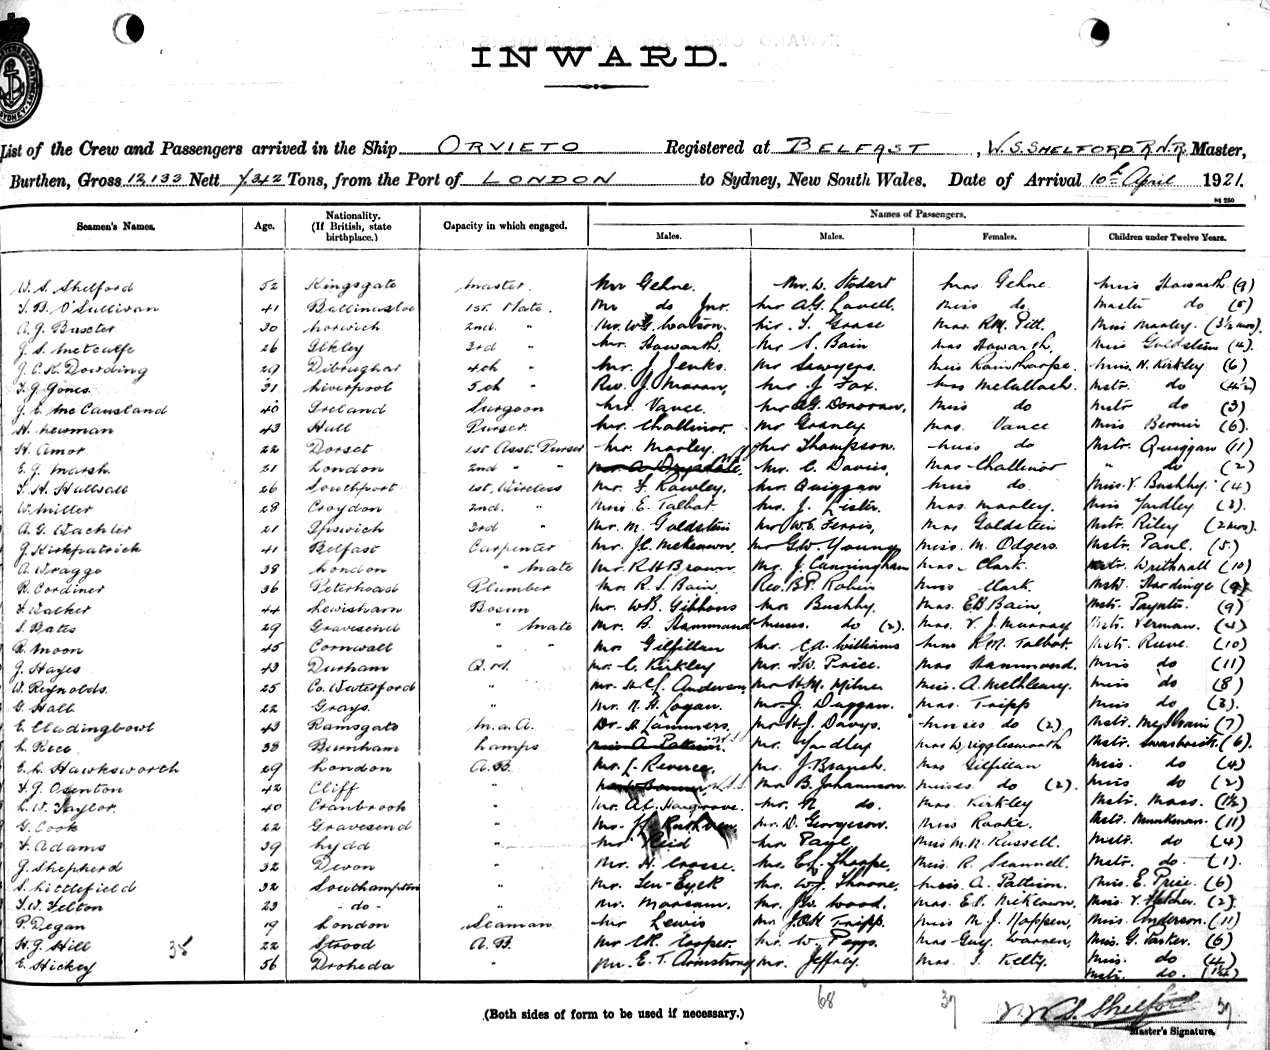 INWARD.
List of the Crew and Passengers arrived in the Ship ORVIETO Registered at BELFAST, W.S. SHELFORD R.N.R. Master,
Burthen, Gross 12,133 Nett 7342 Tons, from the Port of LONDON to Sydney, New South Wales. Date of Arrival 10th April 1921.
Seamen's Names. Age. Nationality. (If British, state birthplace.) Capacity in which engaged. Names of Passengers.
Males. Males. Females. Children under Twelve Years.
W. S. Shelford 52 Kingsgate Master. Mr Gehne. Mr. W. Stodart Mrs Gehne. Miss Howarth (9)
J. B. O'Sullivan 41 Ballinasloe 1st Mate. Mr do Jnr. Mr A.G. Lavell. Miss do Master do (5)
A. J. Baxter 30 Norwich 2nd. " Mr. W.G. Watson. Mr. J. Grose Mrs. R.M. Pitt. Miss Marley. (3½ mos)
J. S. Metcalfe 26 Ilkley 3rd " Mr. Howarth. Mr S. Bain Mrs Howarth, Miss Goldstein (4).
J. C. K. Dowding 29 Dibrughar 4th " Mr. J. Jenks. Mr Sawyers. Miss Rainsthorpe. Miss. N. Kirkley (6)
J. J. Jones. 31 Liverpool 5th " Rev. J. Moran, Mr J. Fox. Mrs McCulloch. Mstr do (4½)
J. E. McCausland 40 Ireland Surgeon Mr. Vance. Mr A.G. Donovan, Miss do Mstr do (3)
H. Newman 43 Hull Purser. Mr. Challinor. Mr Graney Mrs. Vance Miss Bernie (6).
H. Amor 22 Dorset 1st Asst. Purser Mr. Marley. Mr Thompson. Miss do Mstr. Quiggan (11)
E. J. Marsh. 21 London 2nd " " Mr. C. Davies, Mrs Challinor " do (2)
J. H. Hallsall 26 Southport 1st. Wireless Mr. F. Rawley. Mr. Quiggan Miss do. Miss. V. Bushby. (4)
W. Miller 28 Croydon 2nd. " Miss E. Talbot. Mr. J. Lister. Mrs. Marley. Miss Yardley (3).
A. G. Wachter 21 Ipswich 3rd " Mr. M. Goldstein Mr W.E. Ferris, Mrs Goldstein Mstr. Riley (2 mos).
J. Kirkpatrick 41 Belfast Carpenter Mr. J.C. McKeown. Mr G.W. Young Miss. M. Odgers. Mstr. Paul. (5.)
A. Wragge 38 London " Mate Mr. R.H. Brown. Mr. J. Cunningham Mrs Clark. Mstr. Writhnall (10)
R. Cordiner 36 Peterhead Plumber Mr. R. S. Bain. Rev. B.P. Robin Miss Clark. Mstr. Hardinge (9)
F. Walker 44 Lewisham Bosun Mr. W.B. Gibbons Mr. Bushby. Mrs. E.B. Bain, Mstr. Paynter. (9)
S. Bates 29 Gravesend " Mate Mr. B. Hammond Messrs. do (2). Mrs. V. J. Murray Mstr. Verman. (4)
R. Moon 45 Cornwall " " Mr Gilfillan Mr. C.A. Williams Miss R.M. Talbot. Mstr. Reeve. (10)
J. Hayes 43 Durham Q.M. Mr. C. Kirkley Mr. F.W. Price. Mrs Hammond. Miss do (11)
W. Reynolds. 25 Co. Waterford " Mr. H.C.J. Andersen Mr H.M. Milner Miss. A. McAleary. Miss do (8)
G. Hall 22 Grays. " Mr. N. H. Logan. Mr. J. Duggan. Mrs. Tripp Miss do (3).
E. Cludingbowl 43 Ramsgate M. a. A. Dr. H. Lammers Mr H.J. Davys. Misses do (2) Mstr. McShain (7)
L. Rice 38 Burnham Lamps Miss A. Pattison. Mr. Yardley Mrs Wrigglesworth Mstr. Swarbrick (6).
E. L. Hawksworth 29 London A.B. Mr. L. Reverce. Mr. J. Branch. Mrs Gilfillan Miss. do (4)
F. J. Osenton 42 Cliff " Mr B. Johannson. Misses do (2). Miss do (2)
L. W. Taylor. 40 Cranbrook " Mr. A.C. Hargrove. Mr. N do. Mrs. Kirkley Mstr. Moss. (1½)
G. Cook 22 Gravesend " Mr. D. Georgeson. Miss Rooke. Mstr. Munkman. (11)
F. Adams 39 Lydd " Mr Reid Mr Paul Miss M.N. Russell. Mstr. do (4)
J. Shepherd 32 Devon " Mr. H. Crosse. Mr. E.L. Thorpe, Miss. R. Scannell. Mstr. do. (1).
S. Littlefield 32 Southampton " Mr. Ten-Eyck Mr. W.J. Throne, Miss. A. Pattison. Miss. E. Price. (6)
T. W. Felton 23 - do - " Mr. Marsam. Mr. J.W. Wood. Mrs. E.P. McKeown. Miss. V. Fletcher (2).
P. Degan 19 London Seaman Mr Lewis Mr. J.O.H. Tripp. Miss N. J. Hoppen, Miss. Anderson. (11)
H. J. Hill 22 Strood A.B. Mr C.R. Cooper. Mr. W. Pepps. Mrs Guy Warren, Miss. G. Parker. (6)
E. Hickey 56 Drogheda " Mr. E. T. Armstrong Mr. Jeffrey. Mrs. J. Kelty. Miss. do (4)
Mstr. do. (1¾)
35
68 37 37
W. S. Shelford
(Both sides of form to be used if necessary.) Master's Signature.